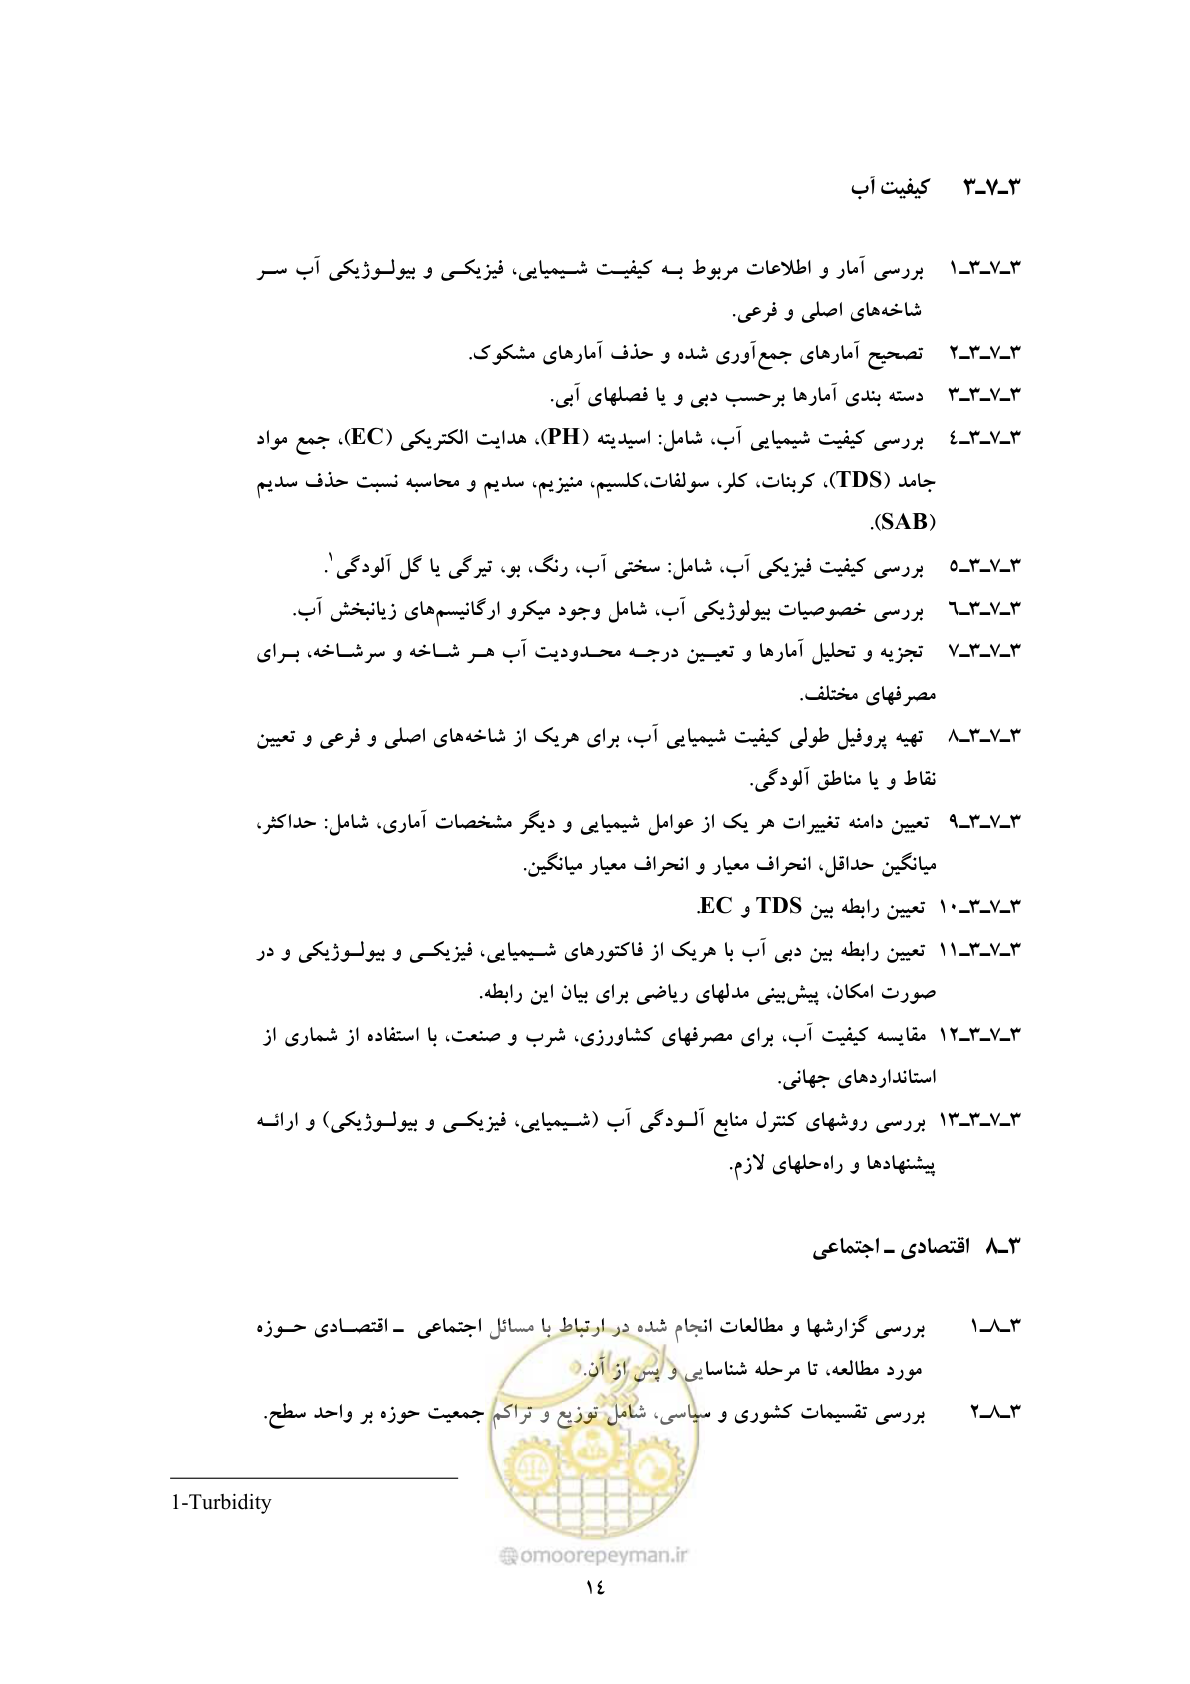 ۳ـ۷ـ۳ کیفیت آب
۳ـ۷ـ۳ـ۱ بررسی آمار و اطلاعات مربوط به کیفیت شیمیایی، فیزیکی و بیولوژیکی آب سر
شاخه‌های اصلی و فرعی.
۳ـ۷ـ۳ـ۲ تصحیح آمارهای جمع‌آوری شده و حذف آمارهای مشکوک.
۳ـ۷ـ۳ـ۳ دسته بندی آمارها برحسب دبی و یا فصلهای آبی.
۳ـ۷ـ۳ـ٤ بررسی کیفیت شیمیایی آب، شامل: اسیدیته (PH)، هدایت الکتریکی (EC)، جمع مواد
جامد (TDS)، کربنات، کلر، سولفات،کلسیم، منیزیم، سدیم و محاسبه نسبت حذف سدیم
(SAB).
۳ـ۷ـ۳ـ٥ بررسی کیفیت فیزیکی آب، شامل: سختی آب، رنگ، بو، تیرگی یا گل آلودگی۱.
۳ـ۷ـ۳ـ٦ بررسی خصوصیات بیولوژیکی آب، شامل وجود میکرو ارگانیسم‌های زیانبخش آب.
۳ـ۷ـ۳ـ۷ تجزیه و تحلیل آمارها و تعیین درجه محدودیت آب هر شاخه و سرشاخه، برای
مصرفهای مختلف.
۳ـ۷ـ۳ـ۸ تهیه پروفیل طولی کیفیت شیمیایی آب، برای هریک از شاخه‌های اصلی و فرعی و تعیین
نقاط و یا مناطق آلودگی.
۳ـ۷ـ۳ـ۹ تعیین دامنه تغییرات هر یک از عوامل شیمیایی و دیگر مشخصات آماری، شامل: حداکثر،
میانگین حداقل، انحراف معیار و انحراف معیار میانگین.
۳ـ۷ـ۳ـ۱۰ تعیین رابطه بین TDS و EC.
۳ـ۷ـ۳ـ۱۱ تعیین رابطه بین دبی آب با هریک از فاکتورهای شیمیایی، فیزیکی و بیولوژیکی و در
صورت امکان، پیش‌بینی مدلهای ریاضی برای بیان این رابطه.
۳ـ۷ـ۳ـ۱۲ مقایسه کیفیت آب، برای مصرفهای کشاورزی، شرب و صنعت، با استفاده از شماری از
استانداردهای جهانی.
۳ـ۷ـ۳ـ۱۳ بررسی روشهای کنترل منابع آلودگی آب (شیمیایی، فیزیکی و بیولوژیکی) و ارائه
پیشنهادها و راه‌حلهای لازم.
۳ـ۸ اقتصادی ـ اجتماعی
۳ـ۸ـ۱ بررسی گزارشها و مطالعات انجام شده در ارتباط با مسائل اجتماعی ـ اقتصادی حوزه
مورد مطالعه، تا مرحله شناسایی و پس از آن.
۳ـ۸ـ۲ بررسی تقسیمات کشوری و سیاسی، شامل توزیع و تراکم جمعیت حوزه بر واحد سطح.
1-Turbidity
امور پیمان
omoorepeyman.ir
۱٤